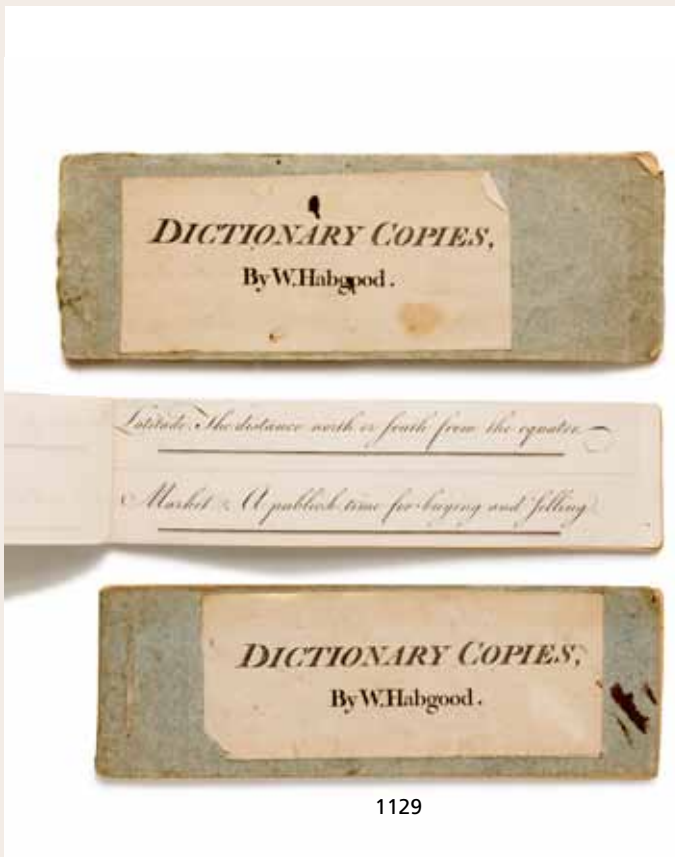 DICTIONARY COPIES,
By W. Habgood.
Latitude. The distance north or ſouth from the equator.
Market. A publick time for buying and ſelling
DICTIONARY COPIES,
By W. Habgood.
1129